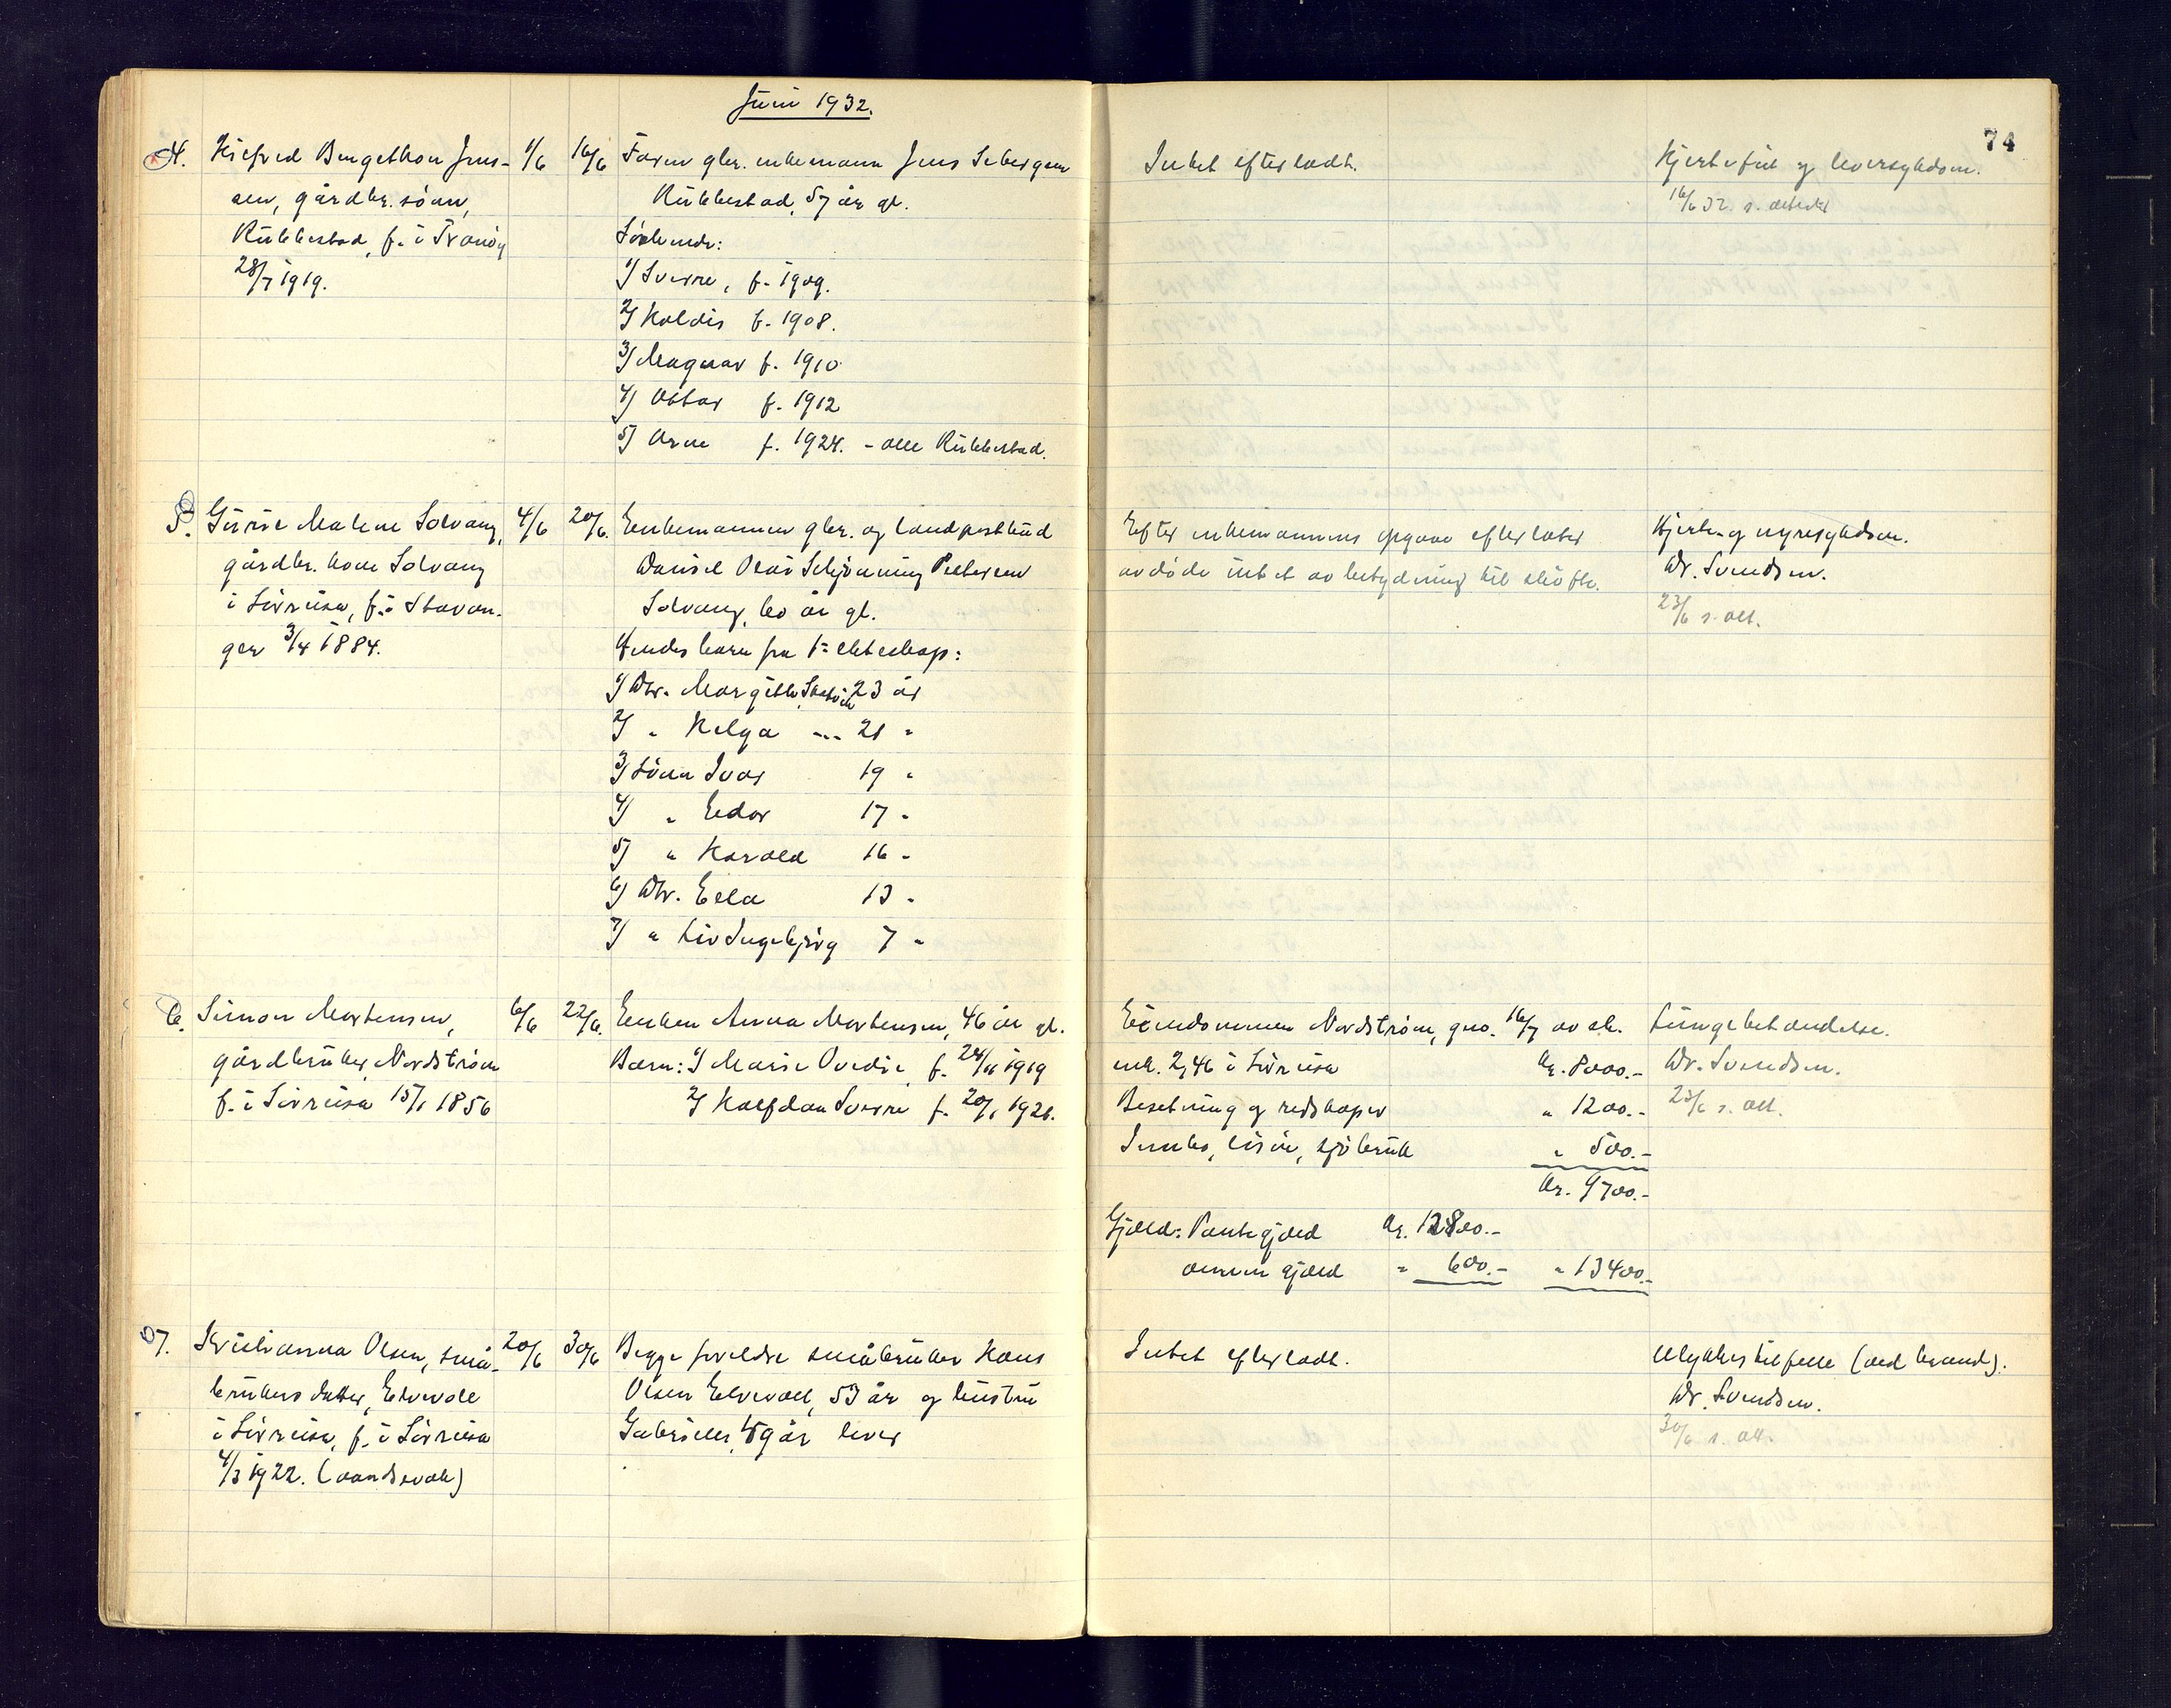 Juni 1932.
74
4. Hilfred Bengethon Jens- 1/6 16/6 Faren gbr. enkemann Jens Seberg
sen, gårdbr. sönn,
Rubbestad, f. i Tranöy
28/7 1919.
Rubbestad, 57 år gl.
Söskende:
1/ Sverre, f. 1909.
2/ Haldis f. 1908.
3/ Magnar f. 1910
4/ Ottar f. 1912
5/ Arne f. 1924. - alle Rubbestad.
Intet efterladt.
Hjertefeil og leversykdom.
16/6 32. s. attest
5. Gurie Malene Solvang, 4/6 20/6.
gårdbr. kone Solvang
i Sörreisa, f. i Stavan-
ger 3/4 1884.
Enkemannen gbr. og landpostbud
Daniel Olai Schjönning Pettersen
Solvang, 60 år gl.
Hendes barn fra 1ste ekteskap:
1/ Dtr. Margithe 23 år
2/ " Helga --- 21 "
3/ Sönn Ivar 19 "
4/ " Eidar 17 "
5/ " Harald 16 "
6/ Dtr. Ella 13 "
7/ " Liv Ingebjörg 7 "
Efter enkemannens opgave efterlater
avdöde intet av betydning til skifte.
Hjerte- og nyresykdom.
Dr. Svendsen.
23/6 s. att.
6. Simon Mortensen, 6/6 22/6.
gårdbruker, Nordström
f. i Sörreisa 15/1 1856
Enken Anna Mortensen, 46 år gl.
Barn: 1/ Marie Ovedie, f. 24/11 1919
2/ Halfdan Sverre f. 20/1 1921.
Eiendommen Nordström, gno. 16/7 av sk.
mk. 2,46 i Sörreisa kr. 8000.-
Besetning og redskaper " 1200.-
Innbo, lisöre, sjöbruk " 500.-
Kr. 9700.-
Gjæld: Pantegjæld kr. 12800.-
annen gjæld " 600.- " 13400.-
Lungebetændelse.
Dr. Svendsen.
23/6 s. att.
7. Kristianna Olsen, små- 20/6 30/6
brukers datter, Elvevoll
i Sörreisa, f. i Sörreisa
4/3 1922. (aandssvak)
Begge foreldre småbruker Hans
Olsen Elvevoll, 53 år og hustru
Gabrielle, 49 år lever
Intet efterladt.
Ulykkestilfelle (ved brand).
Dr. Svendsen.
30/6 s. att.